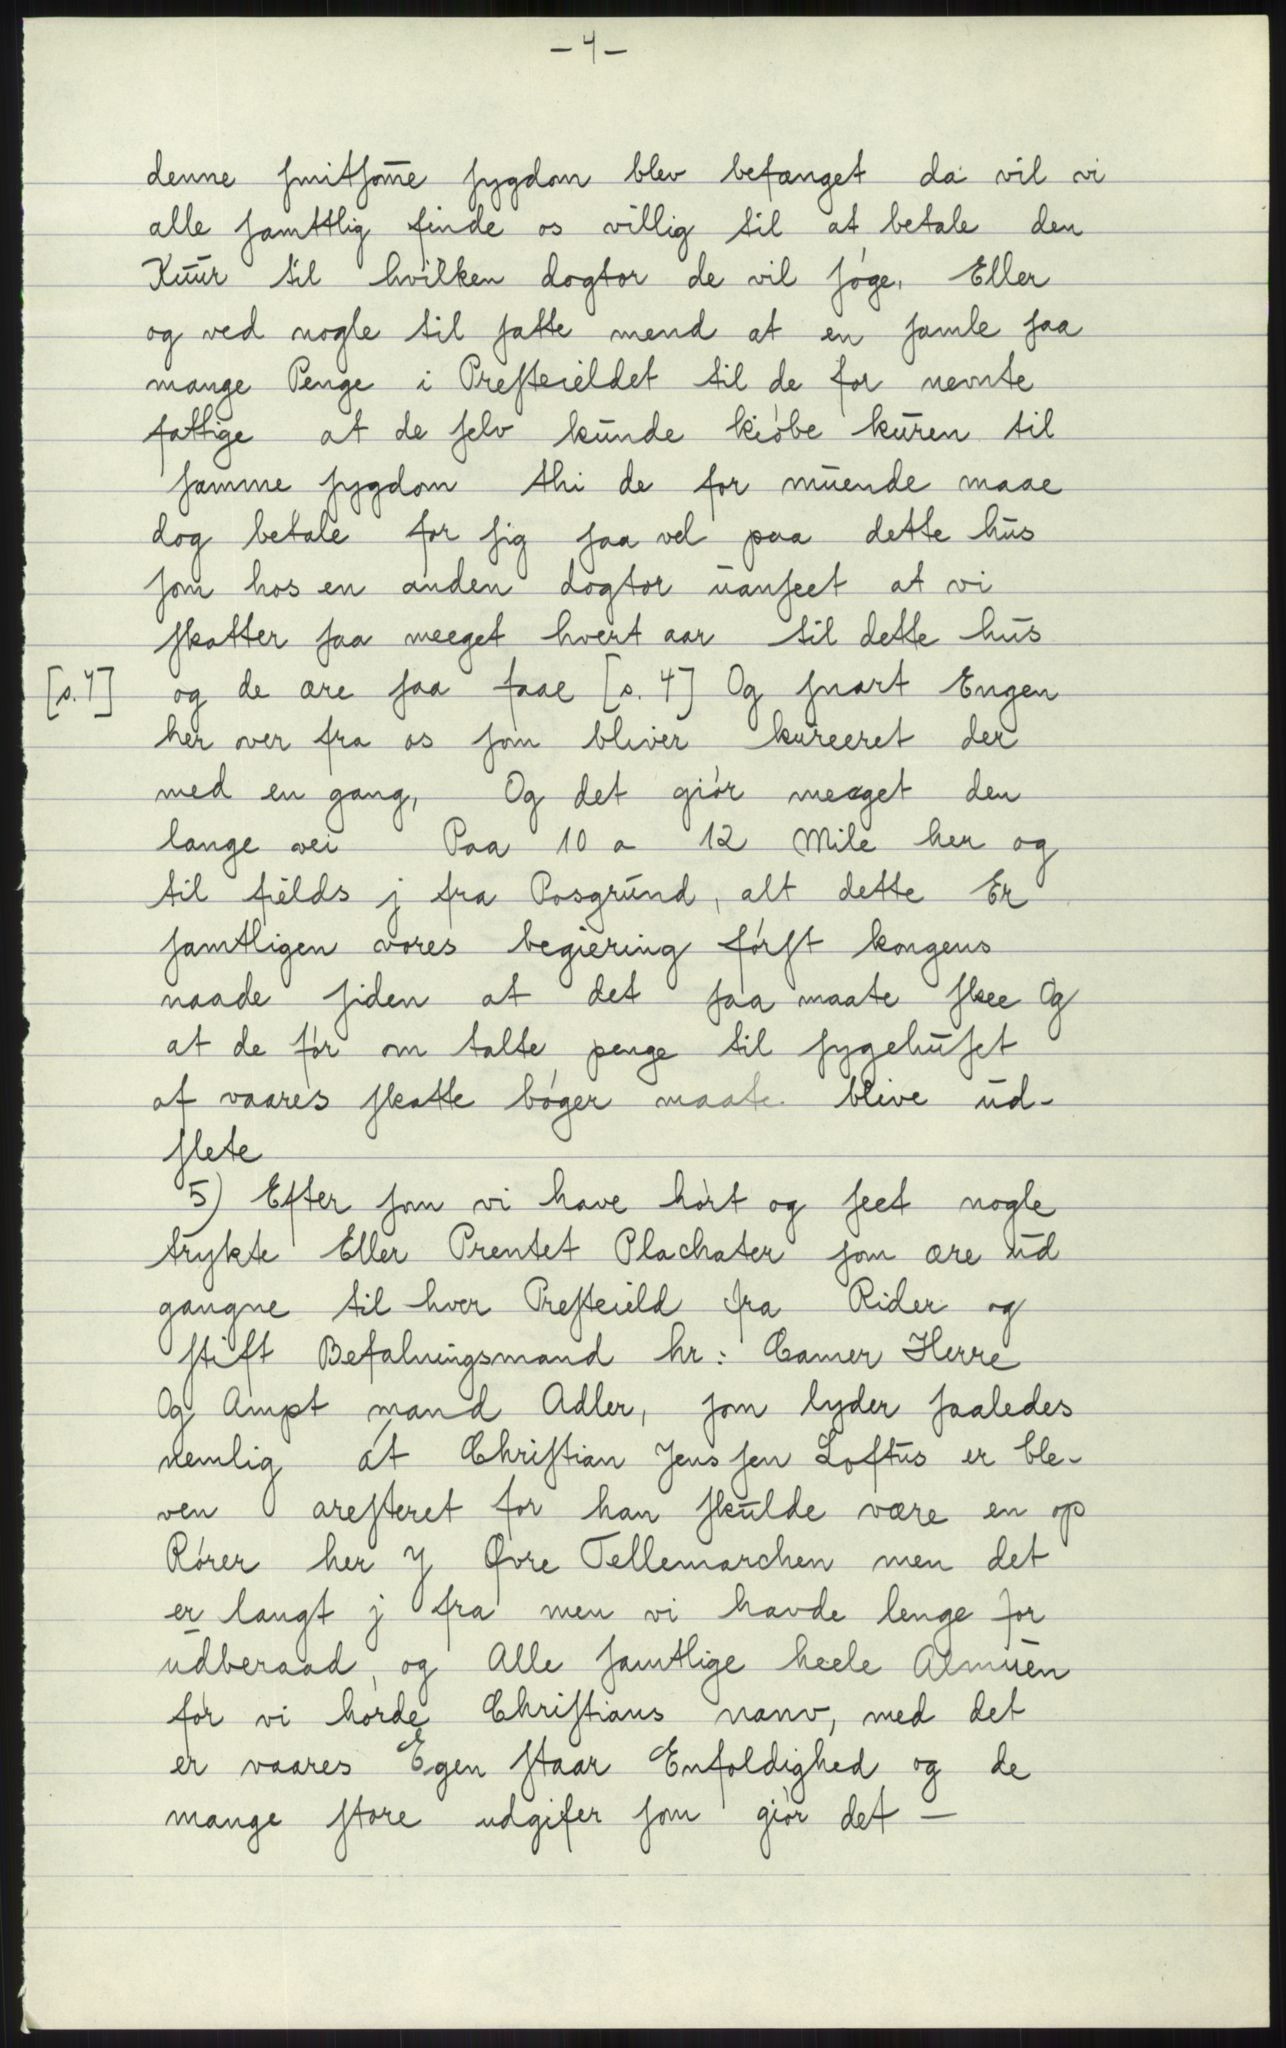 - 4 -
denne smitsom̄e sygdom blev befanget da vil vi
alle samttlig finde os villig til at betale den
Kuur til hvilken dogtor de vil søge, Eller
og ved nogle til satte mend at en samle saa
mange Penge i Presteieldet til de for nevnte
fattige at de selv kunde kiøbe kuren til
samme sygdom thi de for muende maae
dog betale for sig saa vel paa dette hus
som hos en anden dogtor uanseet at vi
skatter saa meeget hvert aar til dette hus
[s. 4] og de ære saa faae [s. 4] Og snart Engen
her over fra os som bliver kureeret der
med en gang, Og det giør meeget den
lange vei Paa 10 a 12 Mile her og
til fields j fra Posgrund, alt dette Er
samtligen vores begiering først kongens
naade siden at det saa maate skee Og
at de før om talte penge til sygehuset
af vaares skatte bøger maate blive ud-
slete
5) Efter som vi have hørt og seet nogle
trykte Eller Prentet Plachater som ære ud
gangne til hver Presteield fra Rider og
stift Befalningsmand hr: Camer Herre
Og Ampt mand Adler, som lyder saaledes
nemlig at Christian Jens sen Loftus er ble-
ven aresteret for han skulde være en op
Rører her J Øvre Tellemarchen men det
er langt j fra men vi havde lenge for
udberaad, og Alle samtlige heele Almuen
før vi hørde Christians navn, med det
er vaares Egen staar Enfoldighed og de
mange store udgifer som giør det —